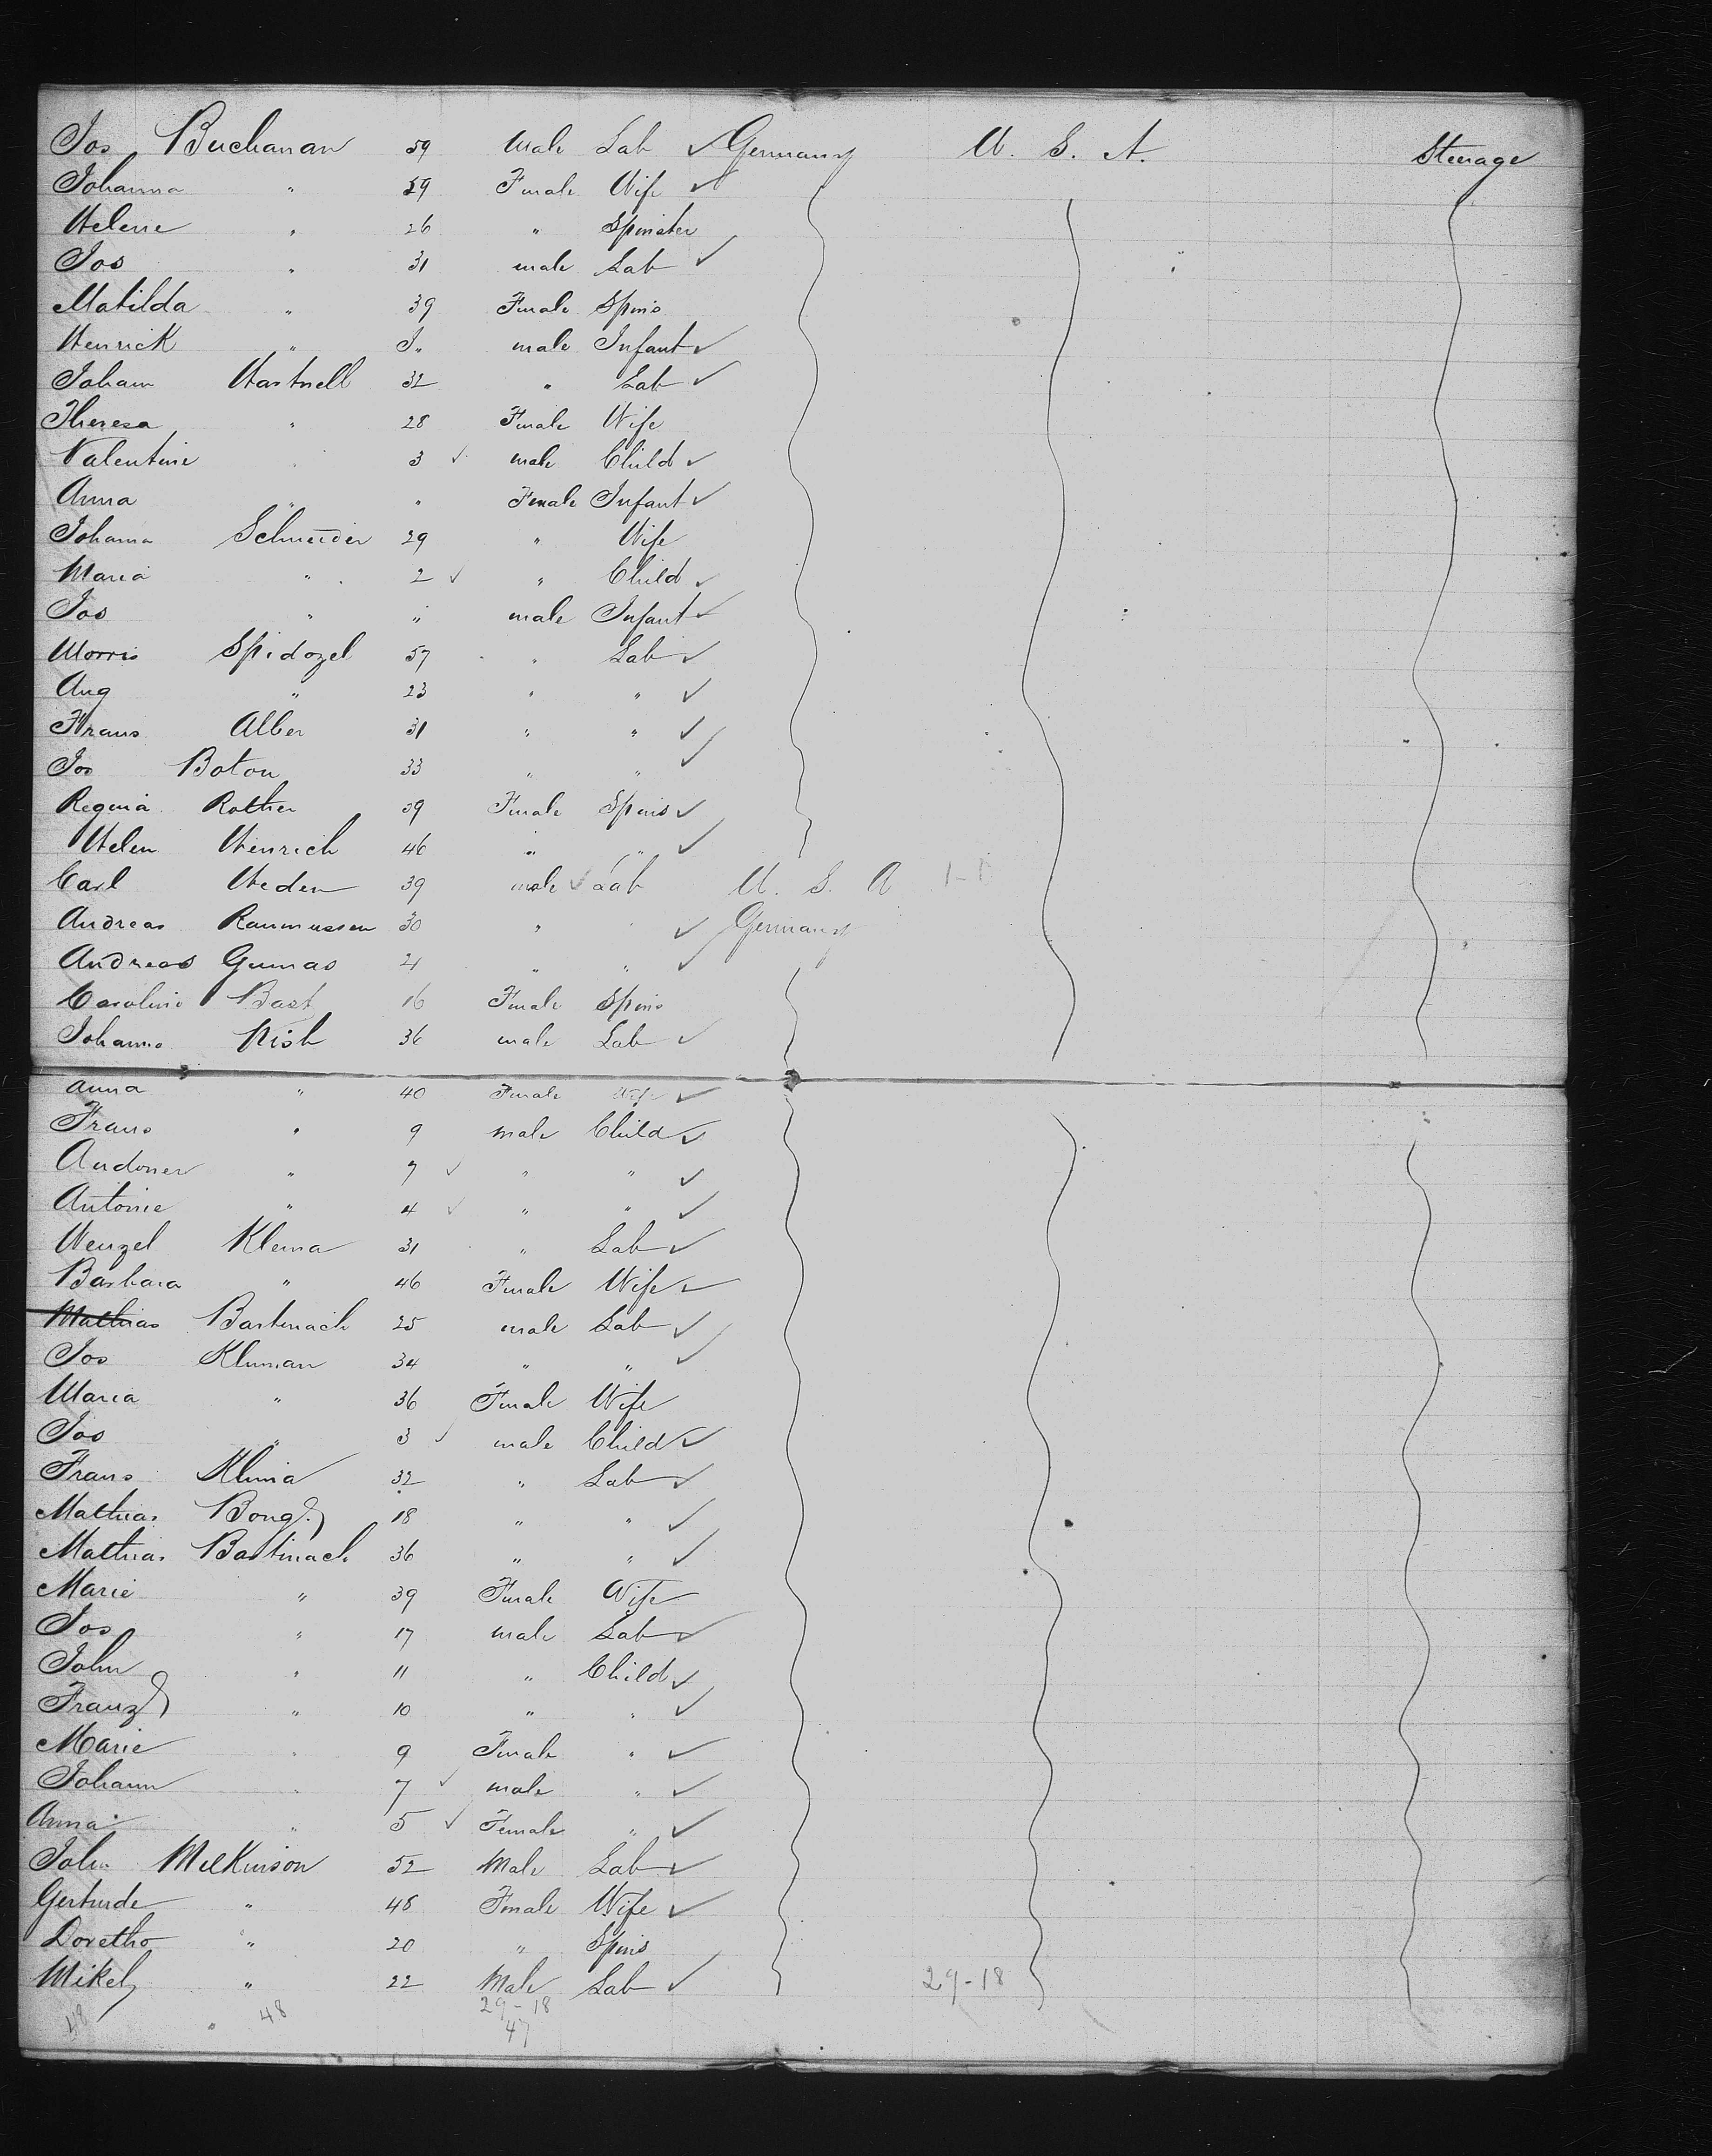 Jos Buchanan 59 Male Lab ✓ Germany U. S. A. Steerage
Johanna " 59 Female Wife ✓
Helene " 26 " Spinster
Jos " 31 male Lab ✓
Matilda " 39 Female Spins
Henrick " male Infant ✓
Johann Hartnell 32 " Lab ✓
Theresa " 28 Female Wife
Valentine " 3 ✓ male Child ✓
Anna " " Female Infant ✓
Johanna Schneider 29 " Wife
Maria " 2 ✓ " Child ✓
Jos " " male Infant ✓
Morris Spidozel 57 " Lab ✓
Aug " 23 " " ✓
Frans Alber 31 " " ✓
Jos Boton 33 " " ✓
Regina Rother 39 Female Spins ✓
Helen Heinrich 46 " " ✓
Carl Heden 39 male ✓ Lab U. S. A
Andreas Raumussen 30 " " ✓ Germany
Andreas Gumas 21 " " ✓
Caroline Bast 16 Female Spins
Johanns 36 male Lab ✓
Anna " 40 Female Wife ✓
Frans " 9 male Child ✓
" 7 ✓ " " ✓
Antonie " 4 ✓ " " ✓
Wenzel Klema 31 " Lab ✓
Barbara " 46 Female Wife ✓
Mathias Bartinach 25 male Lab ✓
Jos Kluman 34 " " ✓
Maria " 36 Female Wife
Jos " 3 ✓ male Child ✓
Frans Klima 32 " Lab ✓
Mathias Bong 18 " " ✓
Mathias Bastinach 36 " " ✓
Marie " 39 Female Wife
Jos " 17 male Lab ✓
John " 11 " Child ✓
Franz " 10 " " ✓
Marie " 9 Female " ✓
Johann " 7 ✓ male " ✓
Anna " 5 ✓ Female " ✓
John Melkinson 52 Male Lab ✓
Gertrude " 48 Female Wife ✓
Doretho " 20 " Spins
Mikel " 22 Male Lab ✓ 29-18
48 " 48 29-18
47